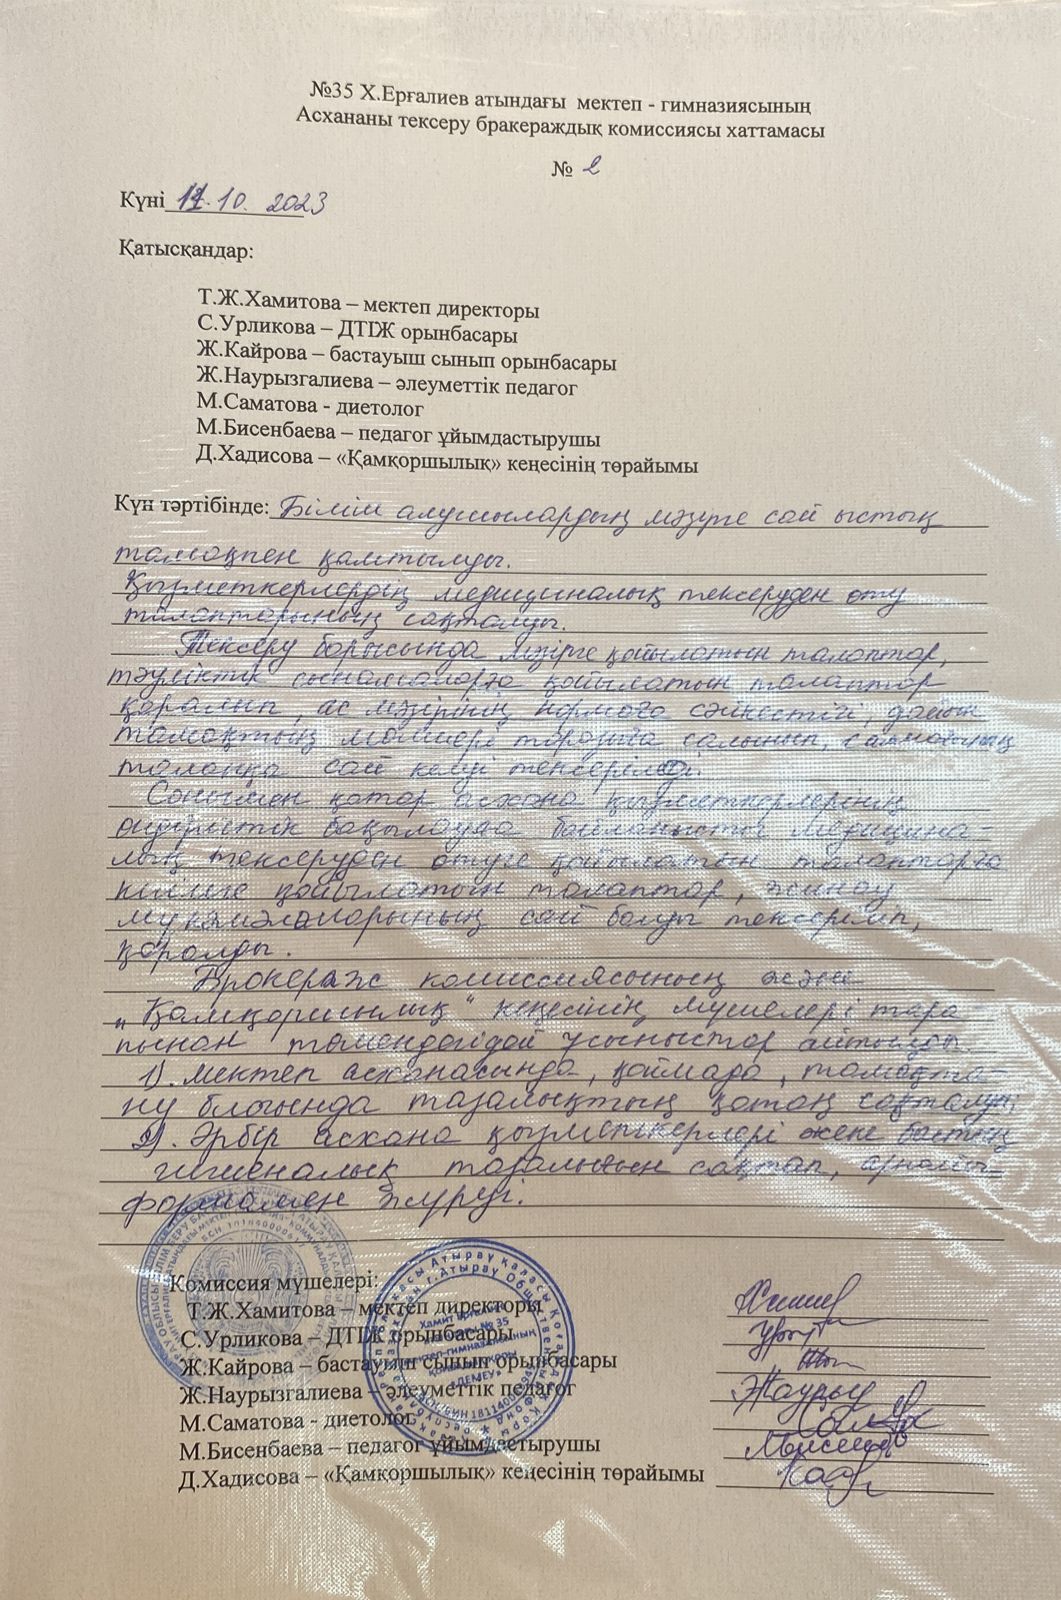 №35 Х.Ерғалиев атындағы мектеп - гимназиясының
Асхананы тексеру бракераждық комиссиясы хаттамасы
№ 2
Күні 11.10. 2023
Қатысқандар:
Т.Ж.Хамитова – мектеп директоры
С.Урликова – ДТІЖ орынбасары
Ж.Кайрова – бастауыш сынып орынбасары
Ж.Наурызгалиева – әлеуметтік педагог
М.Саматова - диетолог
М.Бисенбаева – педагог ұйымдастырушы
Д.Хадисова – «Қамқоршылық» кеңесінің төрайымы
Күн тәртібінде: Білім алушылардың мәзірге сай ыстық
тамақпен қамтылуы.
Қызметкерлердің медициналық тексеруден өту
талаптарының сақталуы.
Тексеру барысында мәзірге қойылатын талаптар,
тәуліктік сынамаларға қойылатын талаптар
қаралып, ас мәзірінің нормаға сәйкестігі, дайын
тамақтың мөлшері таразыға салынып, салмағының
талапқа сай келуі тексерілді.
Сонымен қатар асхана қызметкерлерінің
өндірістік бақылауға байланысты медицина-
лық тексеруден өтуге қойылатын талаптарға
киімге қойылатын талаптар, жинау
мүкәмалдарының сай болуы тексеріліп,
қаралды.
Брокераж комиссиясының және
"Қамқоршылық" кеңесінің мүшелері тара
пынан төмендегідей ұсыныстар айтылды.
1). Мектеп асханасында, қоймада, тамақта-
ну блогында тазалықтың қатаң сақталуы;
2). Әрбір асхана қызметкерлері жеке бастың
гигиеналық тазалығын сақтап, арнайы
формамен жүруі.
Комиссия мүшелері:
Т.Ж.Хамитова – мектеп директоры
С.Урликова – ДТІЖ орынбасары
Ж.Кайрова – бастауыш сынып орынбасары
Ж.Наурызгалиева – әлеуметтік педагог
М.Саматова - диетолог
М.Бисенбаева – педагог ұйымдастырушы
Д.Хадисова – «Қамқоршылық» кеңесінің төрайымы
Хамит Ерғалиев
атындағы № 35
мектеп-гимназиясының
«ДЕМЕУ»